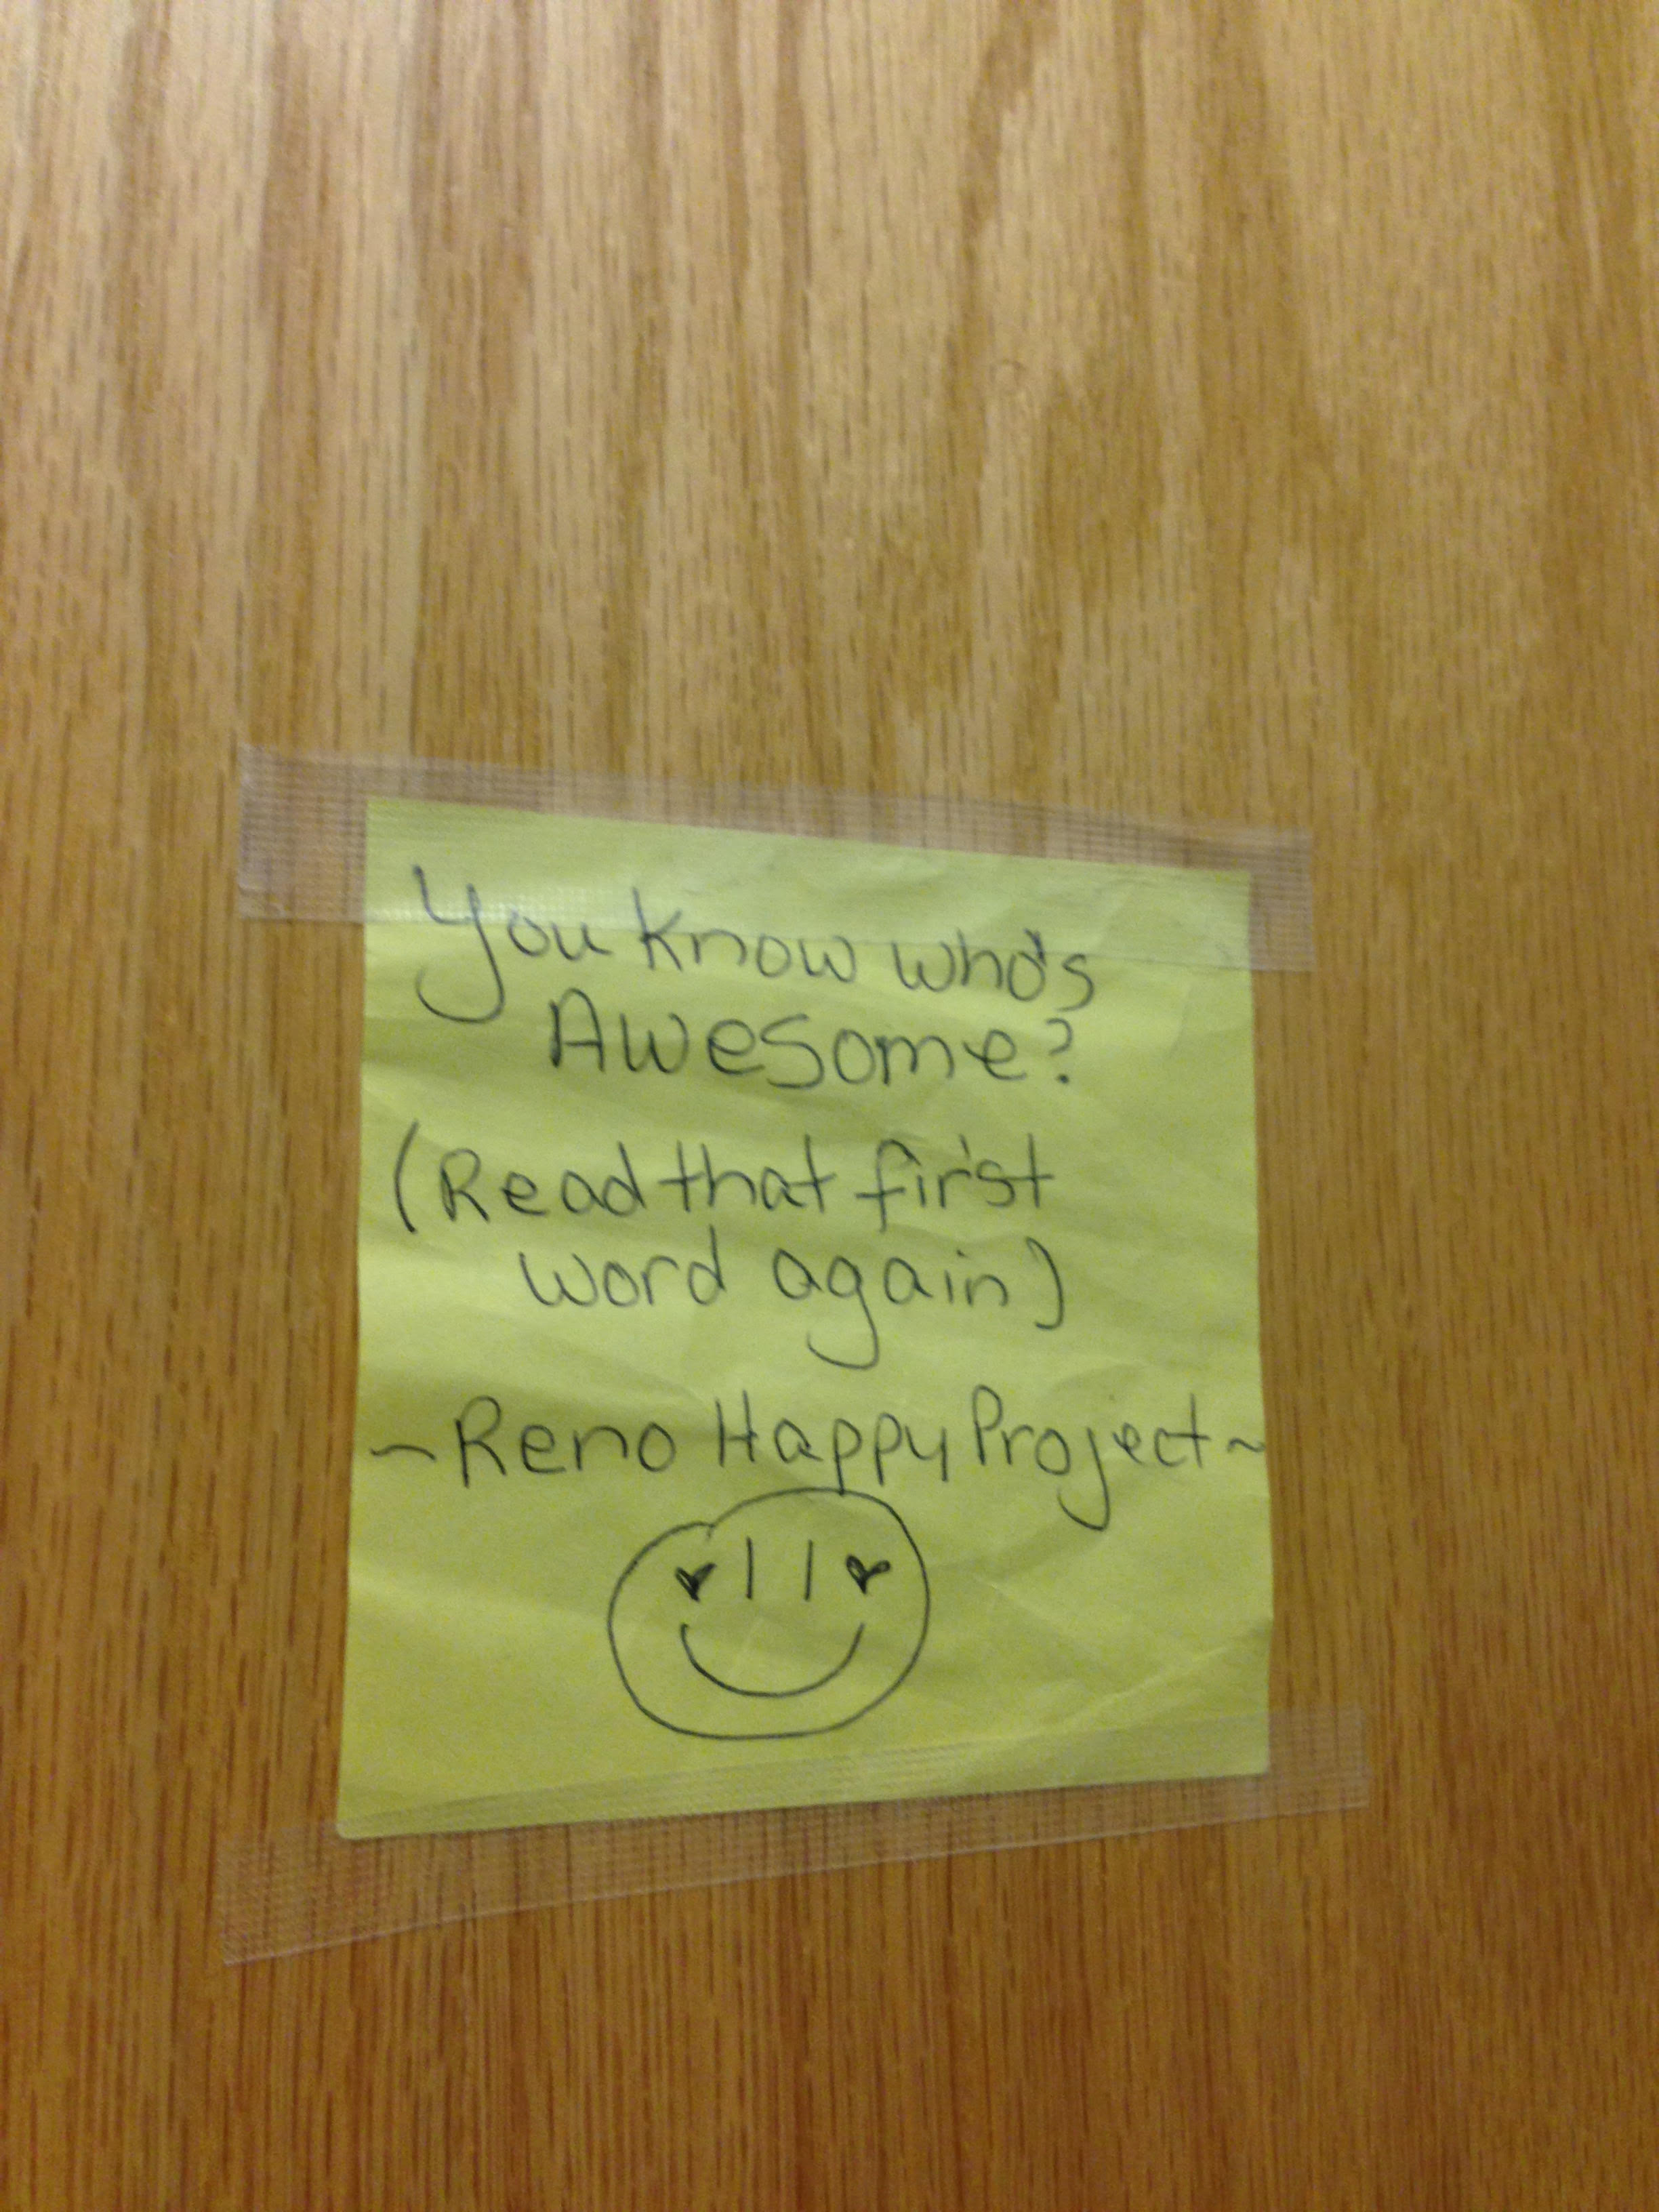 You know who's
Awesome?
(Read that first
word again)
~Reno Happy Project~